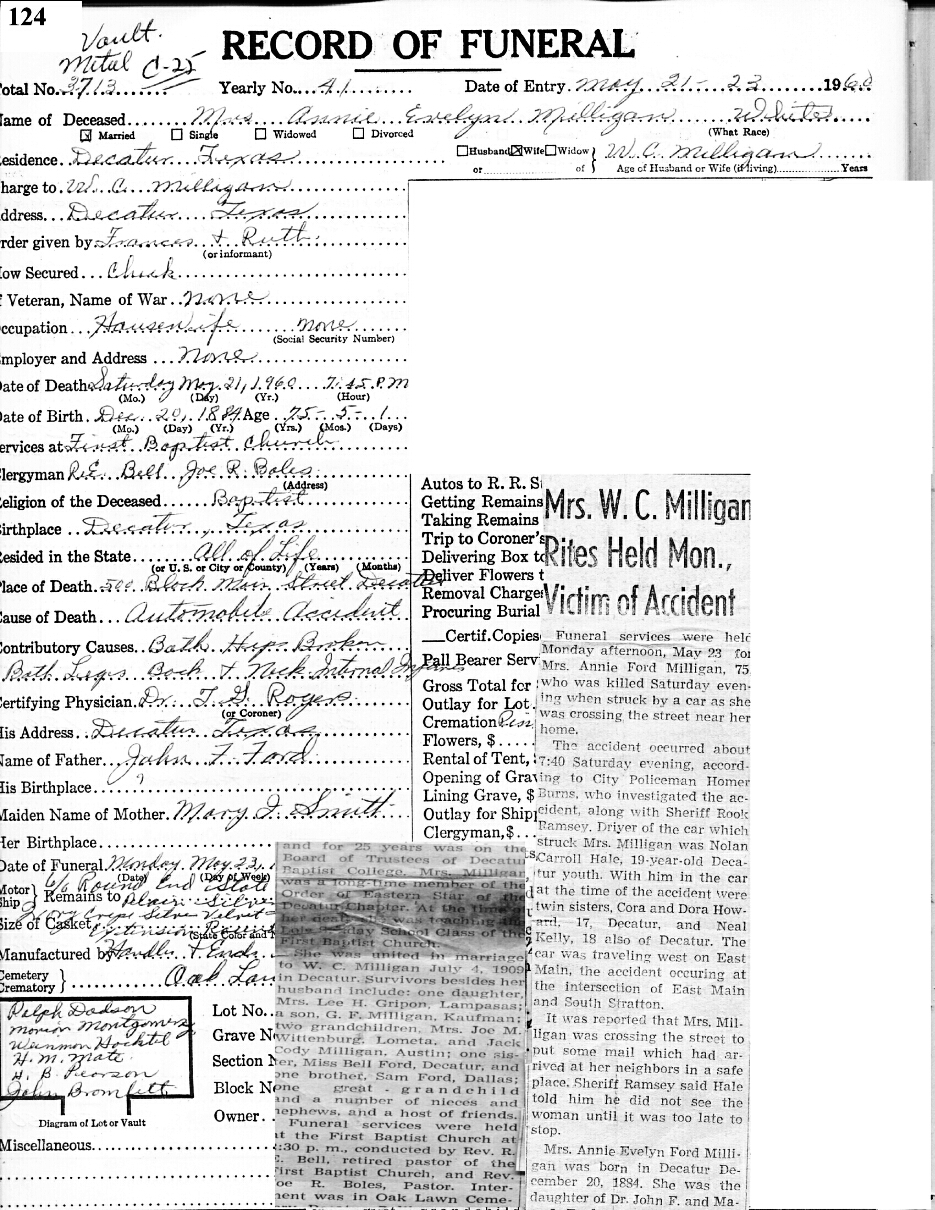 124
Vault.
Metal C-25
RECORD OF FUNERAL
otal No. 3713 Yearly No. 41 Date of Entry. May 21 - 23 1960
ame of Deceased Mrs Annie Evelyn Milligan White
Married Single Widowed Divorced (What Race)
esidence. Decatur Texas Husband Wife Widow W.C. Milligan
or of Age of Husband or Wife (if living) Years
harge to W. C. Milligan
ddress. Decatur Texas
rder given by Frances & Ruth
(or informant)
ow Secured Check
f Veteran, Name of War none
ccupation Housewife none
(Social Security Number)
mployer and Address none
ate of Death Saturday May 21, 1960 7:45 P M
(Mo.) (Day) (Yr.) (Hour)
ate of Birth Dec. 20, 1884 Age 75 - 5 - 1
(Mo.) (Day) (Yr.) (Yrs.) (Mos.) (Days)
ervices at First Baptist Church
lergyman R.E. Bell Joe R. Boles
(Address)
eligion of the Deceased Baptist
irthplace Decatur, Texas
esided in the State All of Life
(or U. S. or City or County) (Years) (Months)
lace of Death 500 Block Main Street Decatur
ause of Death Automobile Accident
ontributory Causes Both Hips Broken
Both Legs Back & Neck Internal
ertifying Physician Dr. T. G. Rogers
(or Coroner)
is Address Decatur Texas
ame of Father John F. Ford
is Birthplace ?
aiden Name of Mother Mary J. Smith
er Birthplace
ate of Funeral Monday May 23,
(Date) (Day of Week)
Motor
Ship
Remains to 6/6 Round End State
Silver
Silver Velvet
ize of Casket
(State Color and
anufactured by
emetery
rematory
Oak Lawn
Ralph Dodson
Marion Montgomery
H. M. Mate
H. B. Pearson
John Bromlett
Diagram of Lot or Vault
Miscellaneous
Lot No.
Grave N
Section N
Block N
Owner
Autos to R. R. S
Getting Remains
Taking Remains
Trip to Coroner's
Delivering Box to
Deliver Flowers t
Removal Charges
Procuring Burial
Certif. Copies
Pall Bearer Serv
Gross Total for
Outlay for Lot
Cremation
Flowers, $
Rental of Tent,
Opening of Grav
Lining Grave, $
Outlay for Ship
Clergyman, $
and for 25 years was on the
Board of Trustees of Decatu
Baptist College. Mrs. Milligan
was a long-time member of the
Order of Eastern Star of the
Decatur Chapter. At the time of
her death she was teaching the
Lois Sunday School Class of the
First Baptist Church.
She was united in marriage
to W. C. Milligan July 4, 1909
in Decatur. Survivors besides her
husband include: one daughter,
Mrs. Lee H. Gripon, Lampasas;
a son, G. F. Milligan, Kaufman;
two grandchildren, Mrs. Joe M.
Wittenburg, Lometa, and Jack
Cody Milligan, Austin; one sis-
ter, Miss Bell Ford, Decatur, and
one brother, Sam Ford, Dallas;
one great grandchild
and a number of nieces and
nephews, and a host of friends.
Funeral services were held
at the First Baptist Church at
:30 p. m., conducted by Rev. R.
. Bell, retired pastor of the
First Baptist Church, and Rev.
oe R. Boles, Pastor. Inter-
ment was in Oak Lawn Ceme-
Mrs. W. C. Milligan
Rites Held Mon.,
Victim of Accident
Funeral services were held
Monday afternoon, May 23 for
Mrs. Annie Ford Milligan, 75
who was killed Saturday even-
ing when struck by a car as she
was crossing the street near her
home.
The accident occurred about
7:40 Saturday evening, accord-
ing to City Policeman Homer
Burns, who investigated the ac-
cident, along with Sheriff Rook
Ramsey. Driver of the car which
struck Mrs. Milligan was Nolan
Carroll Hale, 19-year-old Deca-
tur youth. With him in the car
at the time of the accident were
twin sisters, Cora and Dora How-
ard, 17, Decatur, and Neal
Kelly, 18 also of Decatur. The
car was traveling west on East
Main, the accident occuring at
the intersection of East Main
and South Stratton.
It was reported that Mrs. Mil-
ligan was crossing the street to
put some mail which had ar-
rived at her neighbors in a safe
place. Sheriff Ramsey said Hale
told him he did not see the
woman until it was too late to
stop.
Mrs. Annie Evelyn Ford Milli-
gan was born in Decatur De-
cember 20, 1884. She was the
daughter of Dr. John F. and Ma-